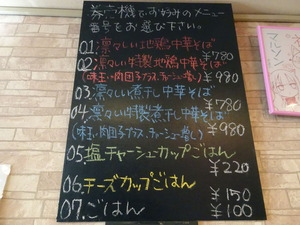 券売機でお好みのメニュー
番号をお選び下さい。
01.凛々しい地鶏中華そば
¥780
02.凛々しい特製地鶏中華そば
(味玉・肉団子プラス、チャーシュー増し) ¥980
03.凛々しい煮干し中華そば
¥780
04.凛々しい特製煮干し中華そば
(味玉・肉団子プラス、チャーシュー増し) ¥980
05塩チャーシューカップごはん
¥220
06.チーズカップごはん
¥150
07.ごはん ¥100